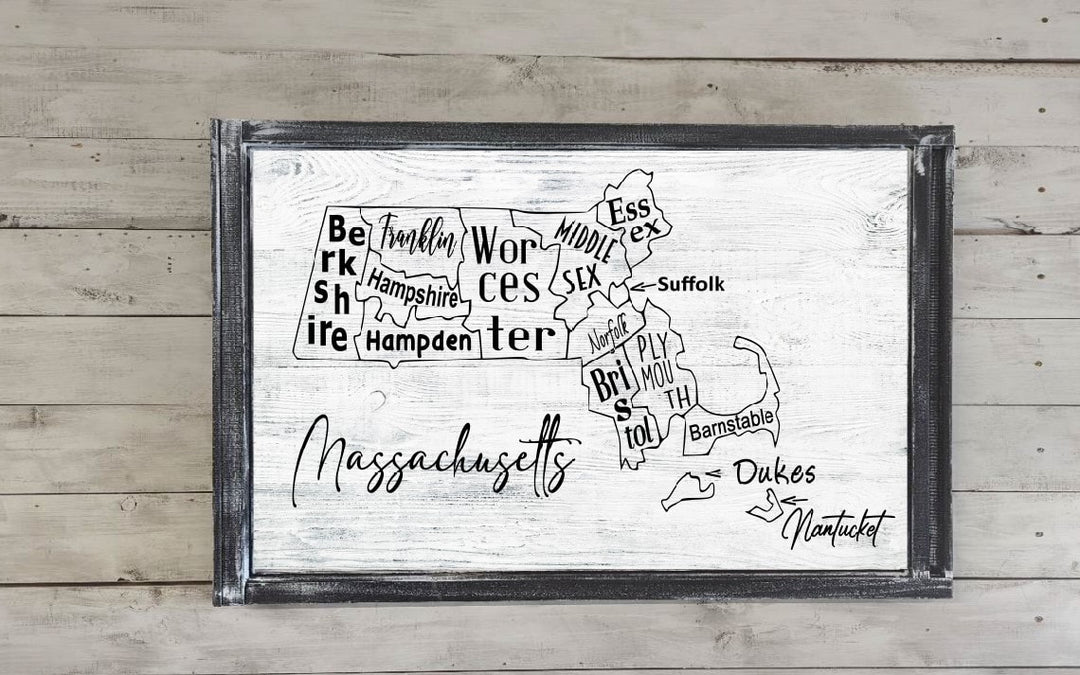 Be
rk
sh
ire
Franklin
Hampshire
Hampden
Wor
ces
ter
MIDDLE
SEX
Ess
ex
Suffolk
Norfolk
Bri
s
tol
PLY
MOU
TH
Barnstable
Dukes
Nantucket
Massachusetts